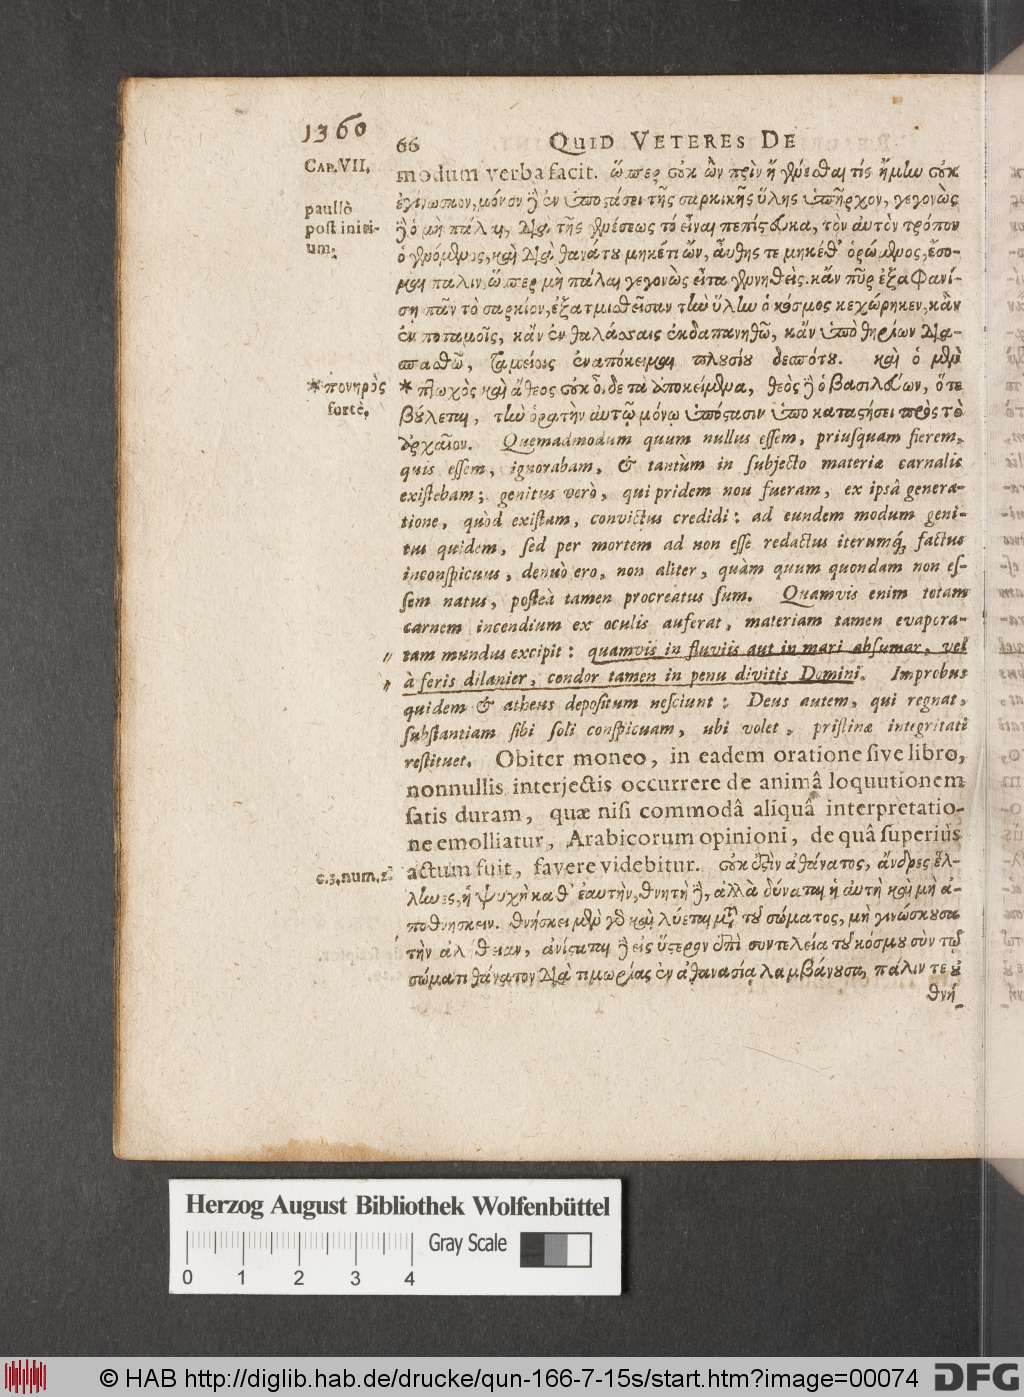 1360
66 QUID VETERES DE
CAP. VII.
modum verba facit. ὥσπερ οὐκ ὢν πρὶν ἢ γενέσθαι, τίς ἤμην οὐκ
paullò
post initi-
um.
ἐγίνωσκον, μόνον δὲ ἐν ὑποστάσει τῆς σαρκικῆς ὕλης ὑπῆρχον, γεγονὼς
δὲ ὁ μὴ πάλαι, διὰ τῆς γενέσεως τὸ εἶναι πεπίστευκα, τὸν αὐτὸν τρόπον
ὁ γενόμενος, καὶ διὰ θανάτου μηκέτι ὤν, αὖθις τε μηκέθ' ὁρώμενος, ἔσο-
μαι πάλιν, ὥσπερ μὴ πάλαι γεγονὼς εἶτα γεννηθείς. κἂν πῦρ ἐξαφανί-
σῃ πᾶν τὸ σαρκίον, ἐξατμισθεῖσαν τὴν ὕλην ὁ κόσμος κεχώρηκεν, κἂν
ἐν ποταμοῖς, κἂν ἐν θαλάσσαις ἐκδαπανηθῶ, κἂν ὑπὸ θηρίων δια-
σπασθῶ, ταμείοις ἐναπόκειμαι πλουσίου δεσπότου. καὶ ὁ μὲν
* πονηρὸς
fortè.
* πτωχὸς καὶ ἄθεος οὐκ οἶδε τὰ ἀποκείμενα, θεὸς δὲ ὁ βασιλεύων, ὅτε
βούλεται, τὴν ὁρατὴν αὐτῷ μόνῳ ὑπόστασιν ὑποκαταστήσει πρὸς τὸ
ἀρχαῖον. Quemadmodum quum nullus essem, priusquam fierem,
quis essem, ignorabam, & tantùm in subjecto materiæ carnalis
existebam; genitus verò, qui pridem non fueram, ex ipsâ genera-
tione, quòd existam, convictus credidi: ad eundem modum geni-
tus quidem, sed per mortem ad non esse redactus iterumq́; factus
inconspicuus, denuò ero, non aliter, quàm quum quondam non es-
sem natus, posteà tamen procreatus sum. Quamvis enim totam
carnem incendium ex oculis auferat, materiam tamen evapora-
tam mundus excipit: quamvis in fluviis aut in mari absumar, vel
à feris dilanier, condor tamen in penu divitis Domini. Improbus
quidem & atheus depositum nesciunt: Deus autem, qui regnat,
substantiam sibi soli conspicuam, ubi volet, pristinæ integritati
restituet. Obiter moneo, in eadem oratione sive libro,
nonnullis interjectis occurrere de animâ loquutionem
satis duram, quæ nisi commodâ aliquâ interpretatio-
ne emolliatur, Arabicorum opinioni, de quâ superiùs
c. 5. num. 2.
actum fuit, favere videbitur. οὐκ ἐστὶν ἀθάνατος, ἄνδρες ἕλ-
ληνες, ἡ ψυχὴ καθ' ἑαυτὴν, θνητὴ δέ, ἀλλὰ δύναται ἡ αὐτὴ καὶ μὴ ἀ-
ποθνήσκειν. θνήσκει μὲν γὰρ καὶ λύεται μετὰ τοῦ σώματος, μὴ γινώσκουσα
τὴν ἀλήθειαν, ἀνίσταται δὲ εἰς ὕστερον ἐπὶ συντελεία τοῦ κόσμου σὺν τῷ
σώματι θάνατον διὰ τιμωρίας ἐν ἀθανασίᾳ λαμβάνουσα, πάλιν τε οὐ
θνή-
Herzog August Bibliothek Wolfenbüttel
Gray Scale
0 1 2 3 4
© HAB http://diglib.hab.de/drucke/qun-166-7-15s/start.htm?image=00074
DFG